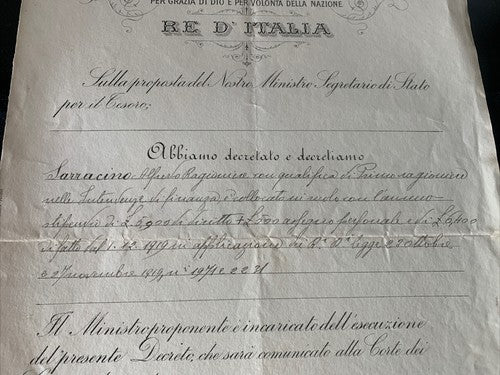 PER GRAZIA DI DIO E PER VOLONTÀ DELLA NAZIONE
RE D'ITALIA
Sulla proposta del Nostro Ministro Segretario di Stato
per il Tesoro;
Abbiamo decretato e decretiamo
Sarracino Alfredo Ragioniere con qualifica di Primo ragioniere
nelle Intendenze di finanza, è collocato in ruolo con l'annuo
stipendio di L. 5,900 di diritto + L. 500 assegno personale e di L. 6,400
di fatto dal 1-12-1919 in applicazione dei R.i D.i legge 2 ottobre
e 27 novembre 1919 n.i 1971 e 2231
Il Ministro proponente è incaricato dell'esecuzione
del presente Decreto, che sarà comunicato alla Corte dei